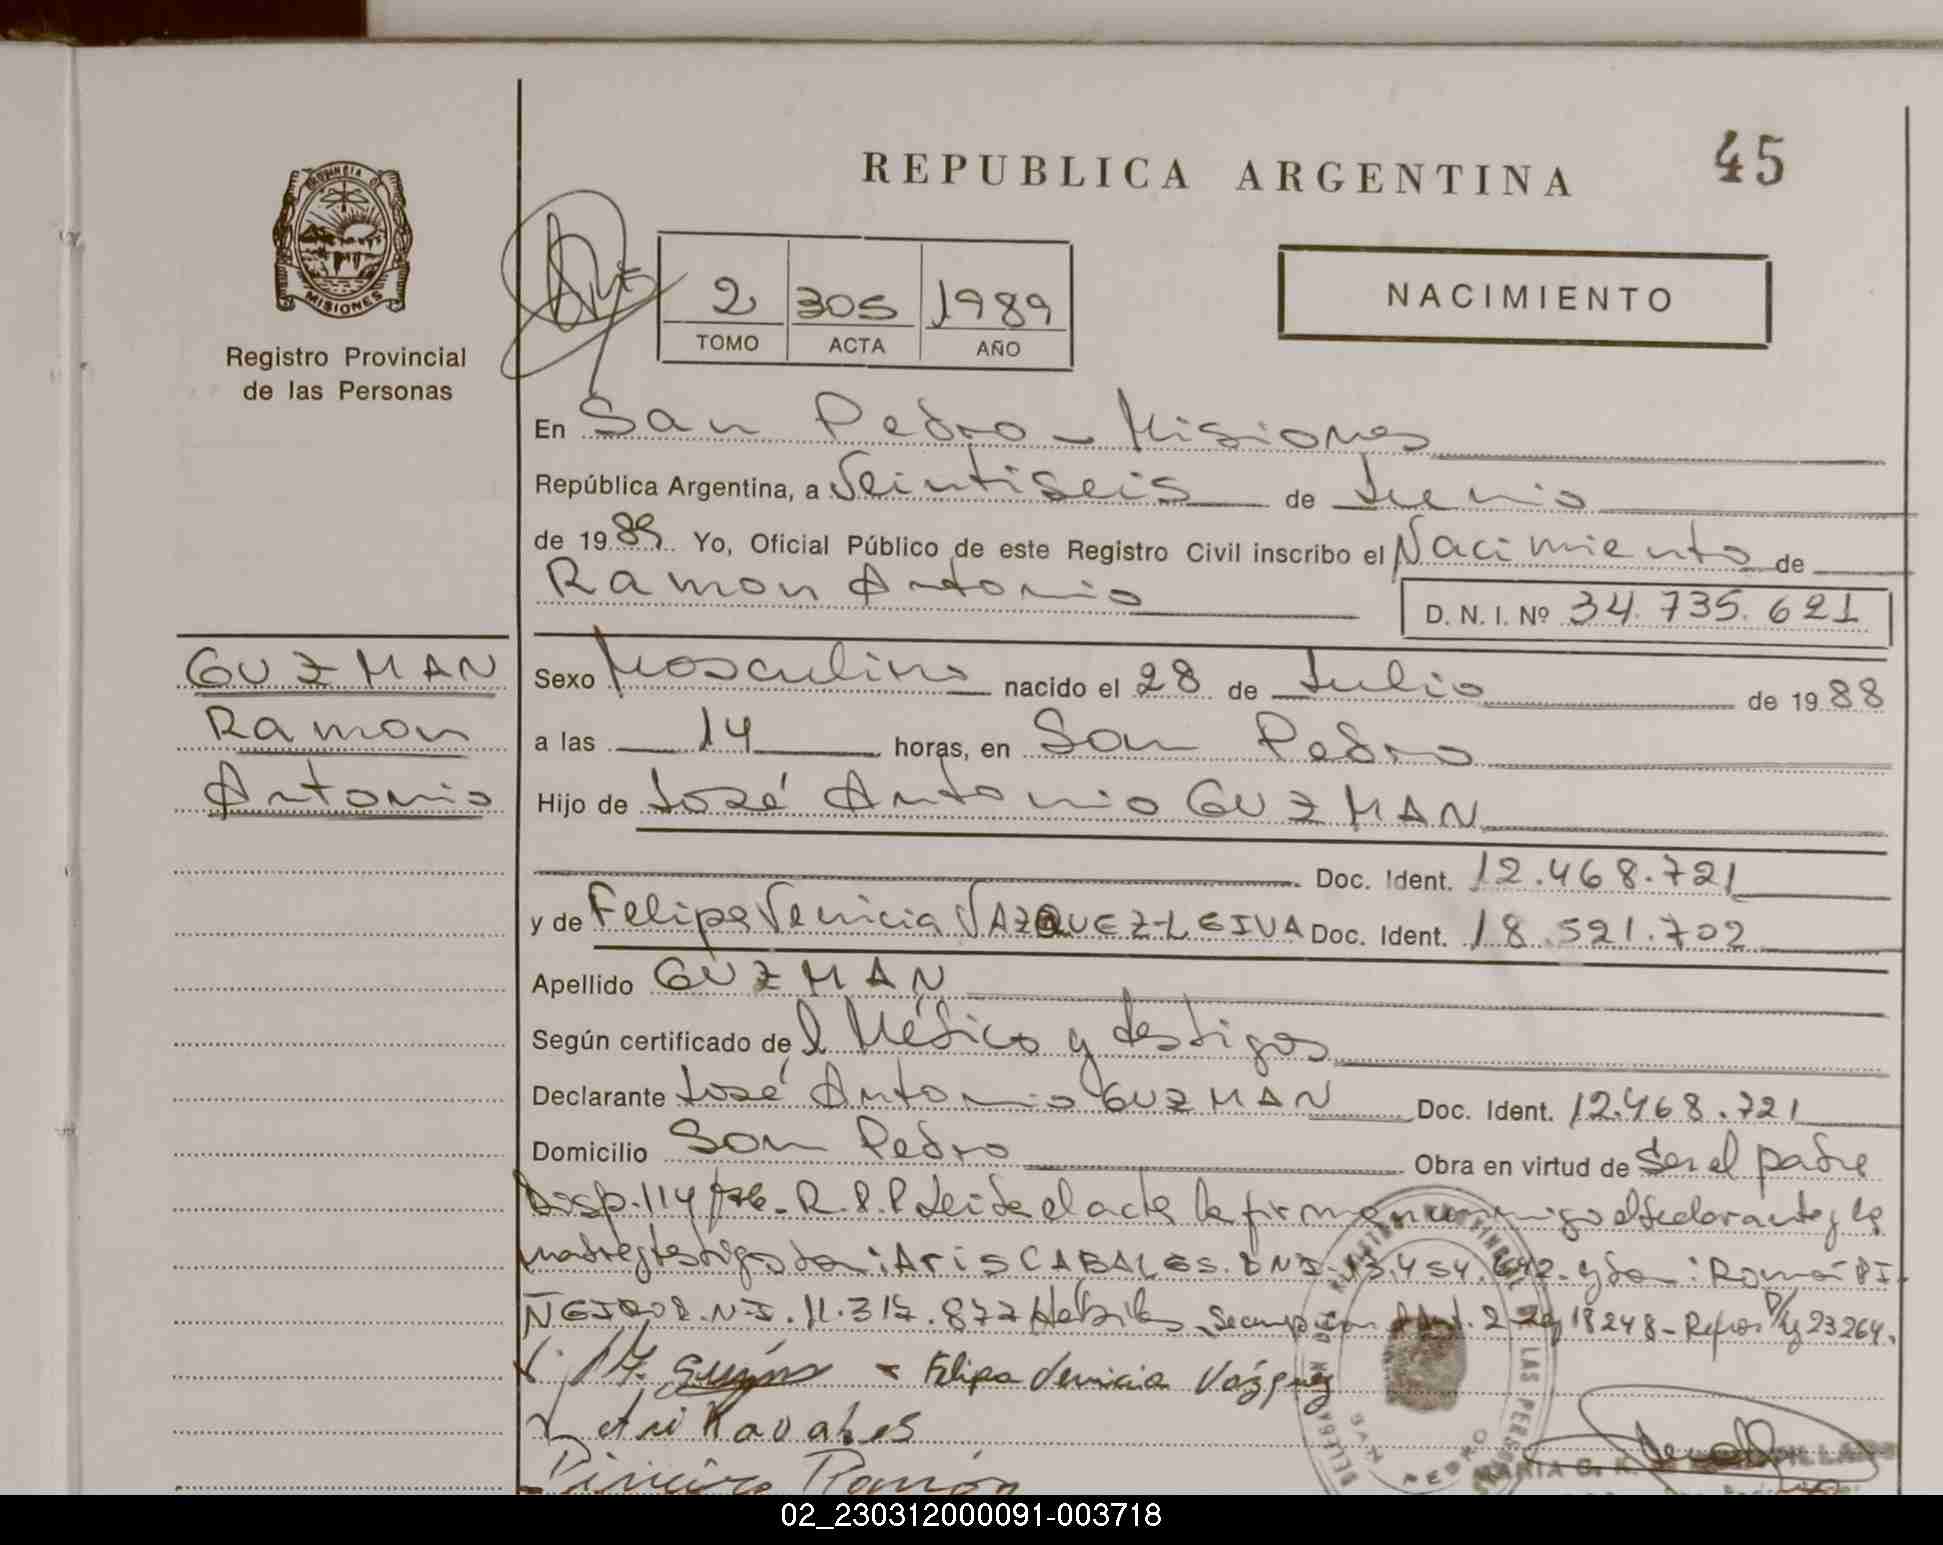 REPUBLICA ARGENTINA
45
PROVINCIA DE
MISIONES
Registro Provincial
de las Personas
2 305 1989
TOMO ACTA AÑO
NACIMIENTO
En San Pedro - Misiones
República Argentina, a Veintiseis de Junio
de 1989. Yo, Oficial Público de este Registro Civil inscribo el Nacimiento de
Ramon Antonio
D. N. I. Nº 34.735.621
GUZMAN
Ramon
Antonio
Sexo Masculino nacido el 28 de Julio de 1988
a las 14 horas, en San Pedro
Hijo de José Antonio GUZMAN
Doc. Ident. 12.468.721
y de Felipa Venicia VAZQUEZ-LEIVA Doc. Ident. 18.521.702
Apellido GUZMAN
Según certificado del Médico y testigos
Declarante José Antonio GUZMAN Doc. Ident. 12.468.721
Domicilio San Pedro Obra en virtud de Ser el padre
Disp. 114/76- R.P.P Leida el acta la firman conmigo el declarante y la
madre y testigos Don: Aris CABALES. DNI. 13.454.642. y Don: Román PI-
ÑEIRO D.N.I. 11.317.877 Habiles 2 Ley 18248- 23264.
Felipa Venicia Vázquez
Ari Kavales
Piñeiro Ramón
SAN PEDRO
MARIA G. K.
02_230312000091-003718